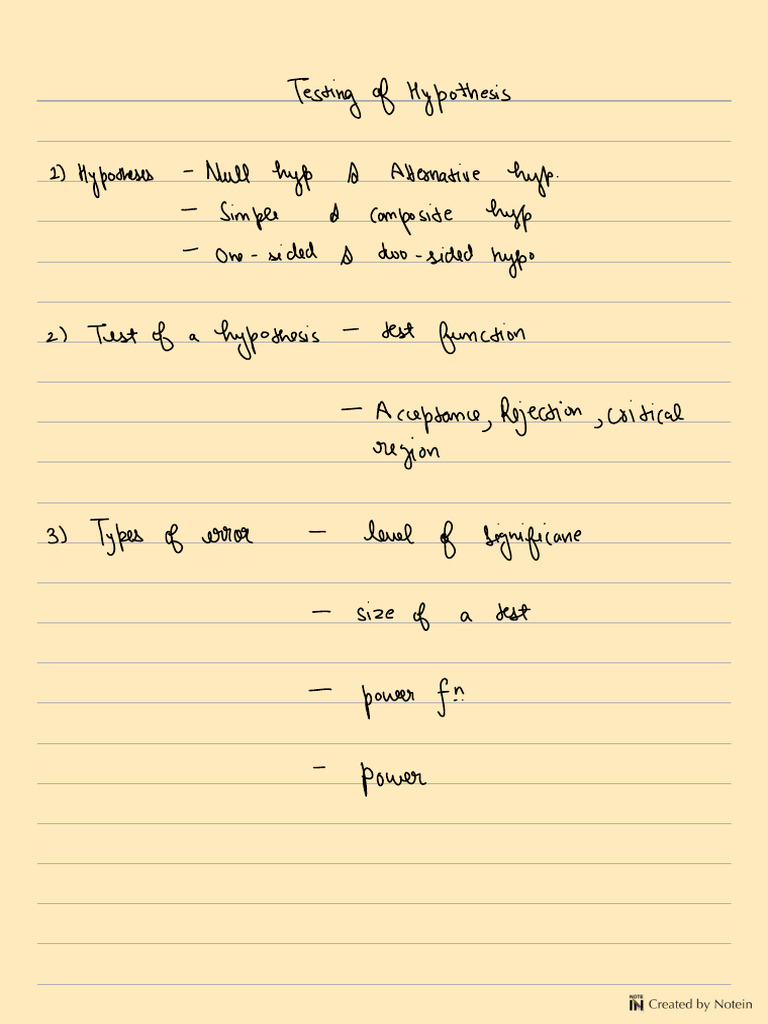 Testing of Hypothesis
1) Hypotheses - Null hyp & Alternative hyp.
- Simple & composite hyp
- One-sided & two-sided hypo
2) Test of a hypothesis - test function
- Acceptance, Rejection, critical
region
3) Types of error - level of significane
- size of a test
- power fn
- power
NOTE IN Created by Notein